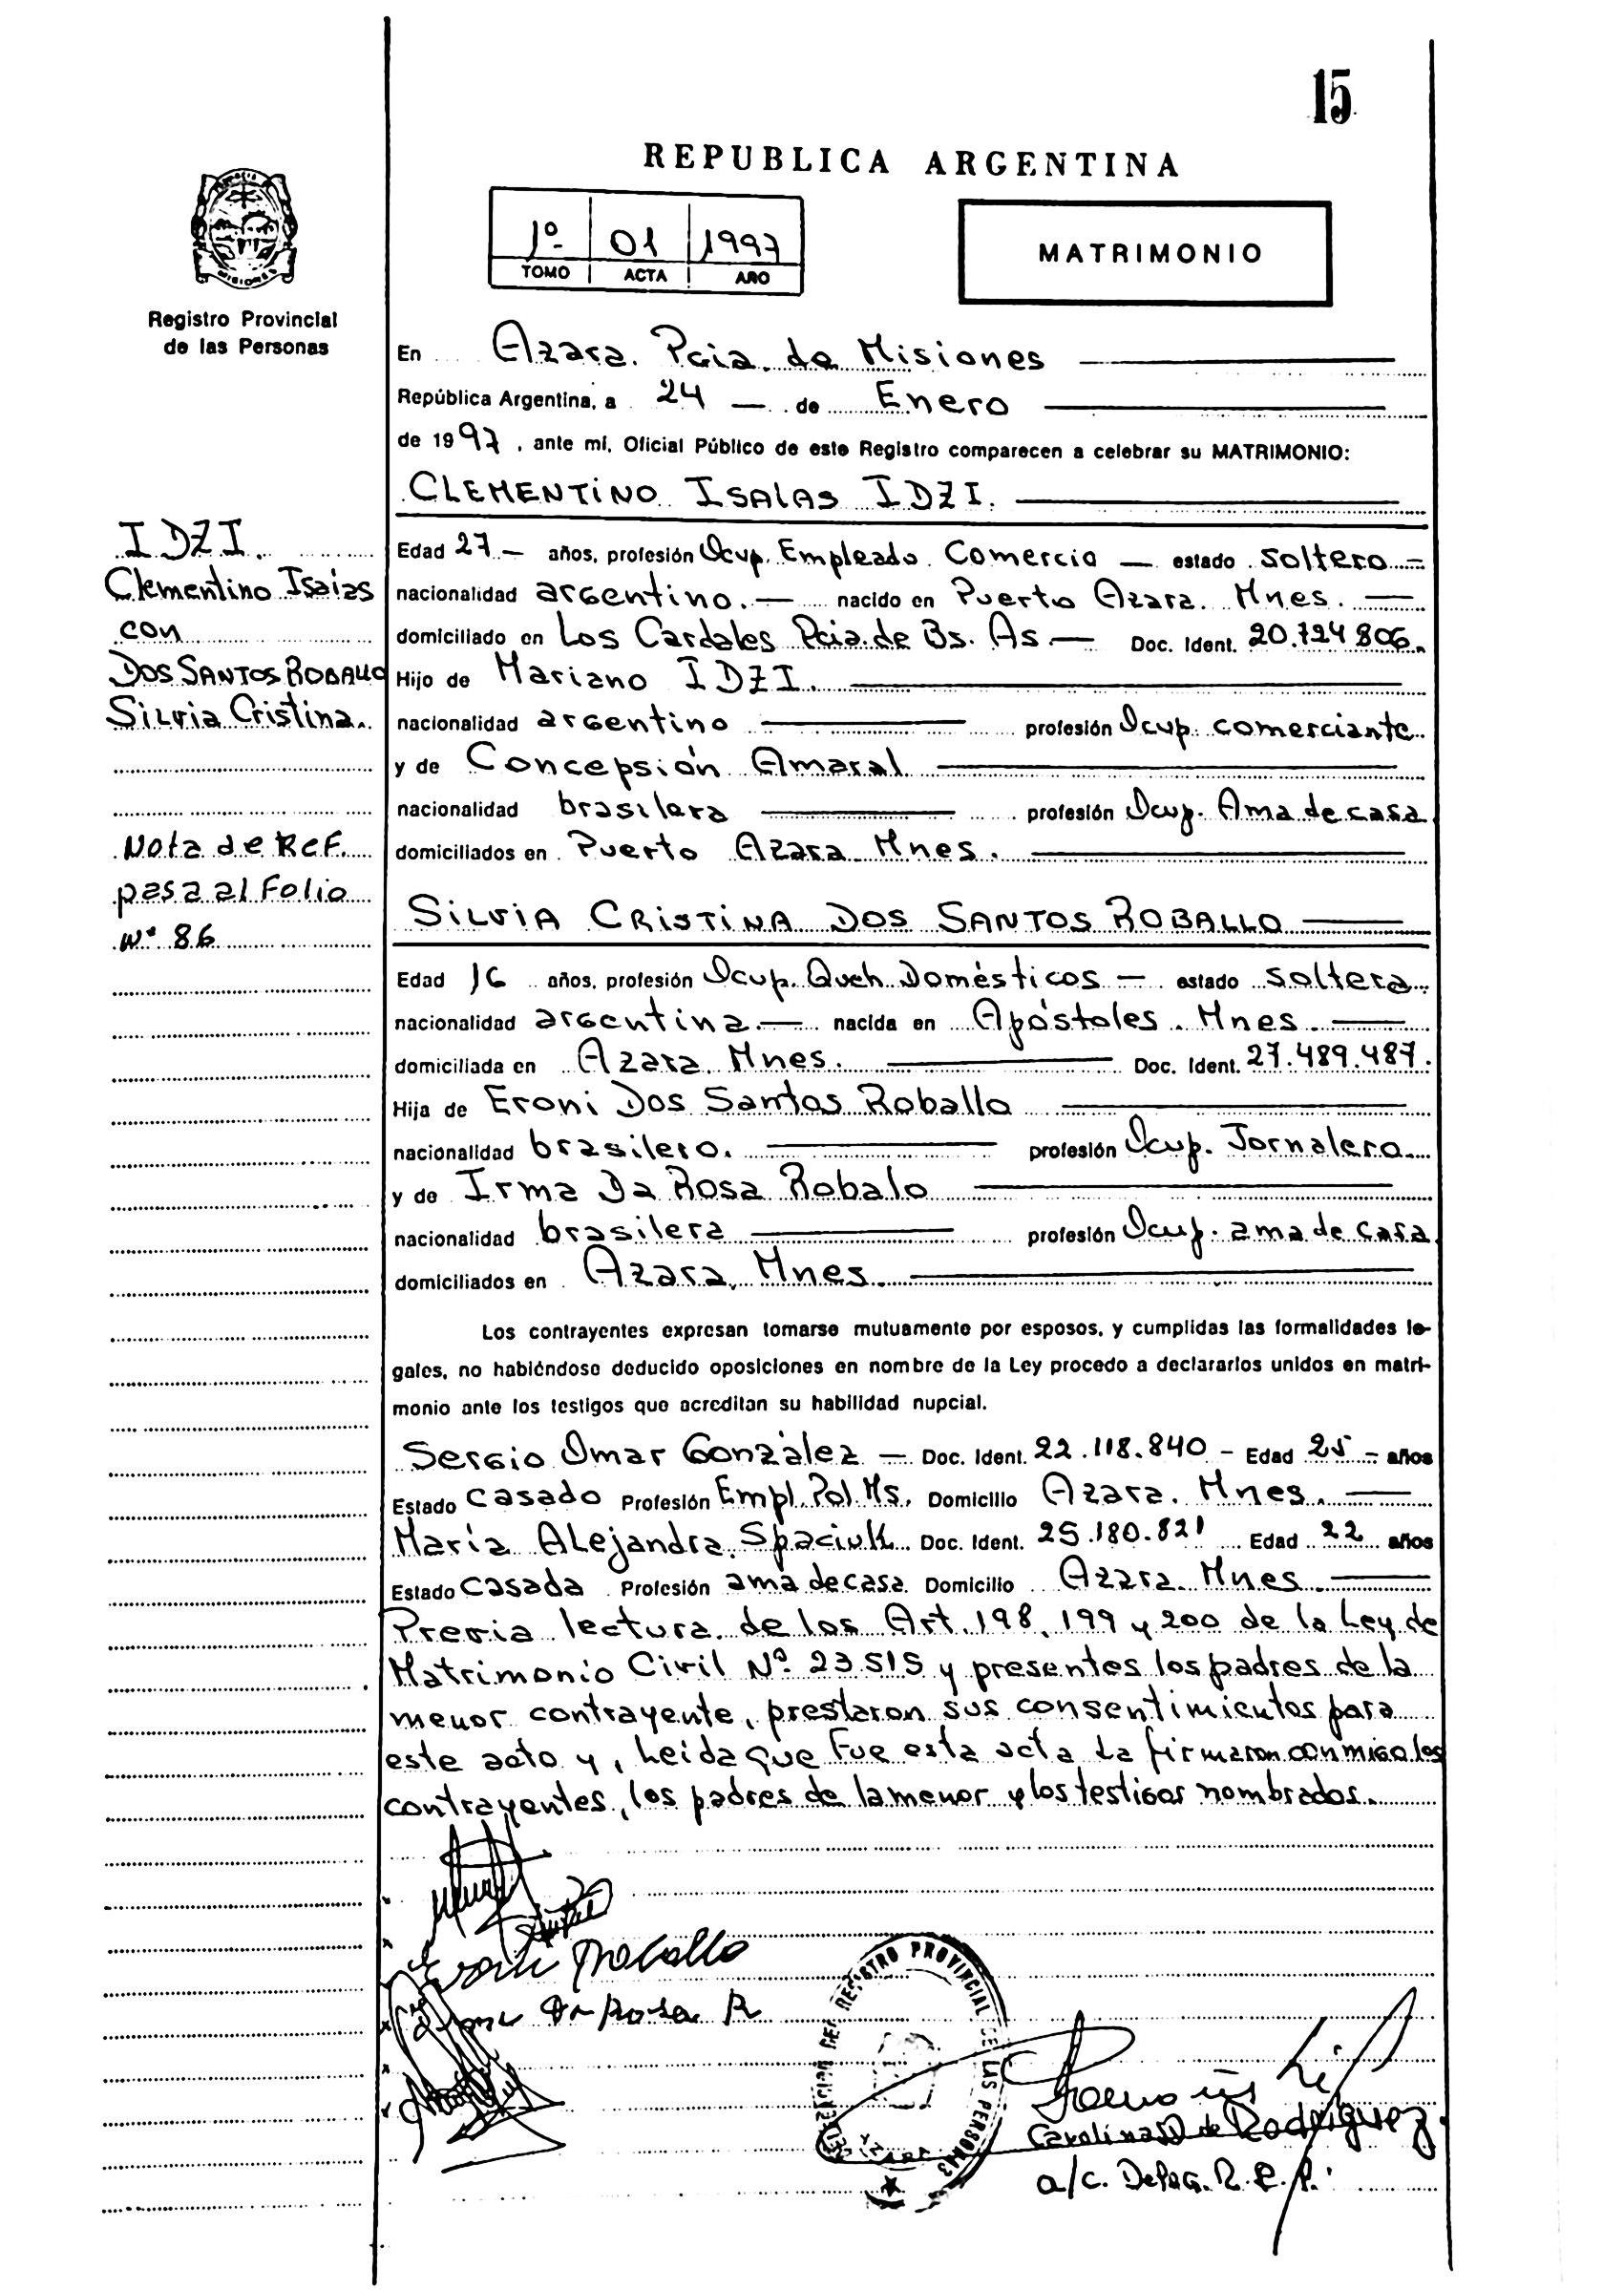 15
REPUBLICA ARGENTINA
1º 01 1997
TOMO ACTA AÑO
MATRIMONIO
MISIONES
Registro Provincial
de las Personas
En Azara. Pcia. de Misiones
República Argentina, a 24 — de Enero
de 1997, ante mí, Oficial Público de este Registro comparecen a celebrar su MATRIMONIO:
CLEMENTINO ISAIAS IDZI.
IDZI.
Clementino Isaias
con
DOS SANTOS ROBALLO
Silvia Cristina.
Nota de Ref.
pasa al Folio
Nº 86
Edad 27 — años, profesión Ocup. Empleado Comercio — estado soltero —
nacionalidad argentino. — nacido en Puerto Azara. Mnes. —
domiciliado en Los Cardales Pcia. de Bs. As — Doc. Ident. 20.724.806.
Hijo de Mariano IDZI.
nacionalidad argentino profesión Ocup. comerciante
y de Concepsión Amaral
nacionalidad brasilera profesión Ocup. Ama de casa
domiciliados en Puerto Azara Mnes.
SILVIA CRISTINA DOS SANTOS ROBALLO
Edad 16 años, profesión Ocup. Queh. Domésticos — estado soltera
nacionalidad argentina. — nacida en Apóstoles. Mnes.
domiciliada en Azara. Mnes. Doc. Ident. 27.489.487.
Hija de Eroni Dos Santos Roballo
nacionalidad brasilero. profesión Ocup. Jornalero
y de Irma Da Rosa Robalo
nacionalidad brasilera profesión Ocup. ama de casa
domiciliados en Azara, Mnes.
Los contrayentes expresan tomarse mutuamente por esposos, y cumplidas las formalidades le-
gales, no habiéndose deducido oposiciones en nombre de la Ley procedo a declararlos unidos en matri-
monio ante los testigos que acreditan su habilidad nupcial.
Sergio Omar González — Doc. Ident. 22.118.840 — Edad 25 — años
Estado casado Profesión Empl. Pol. Ms. Domicilio Azara. Mnes. —
María Alejandra Spaciuk Doc. Ident. 25.180.821 Edad 22 años
Estado casada Profesión ama de casa Domicilio Azara. Mnes
Previa lectura de los Art. 198, 199 y 200 de la Ley de
Matrimonio Civil Nº 23515 y presentes los padres de la
menor contrayente, prestaron sus consentimientos para
este acto y, leída que fue esta acta la firmaron conmigo los
contrayentes, los padres de la menor y los testigos nombrados.
Eroni Roballo
Da Rosa R
REGISTRO PROVINCIAL DE LAS PERSONAS
Carolina D de Rodríguez.
a/c. Deleg. R. P. P.